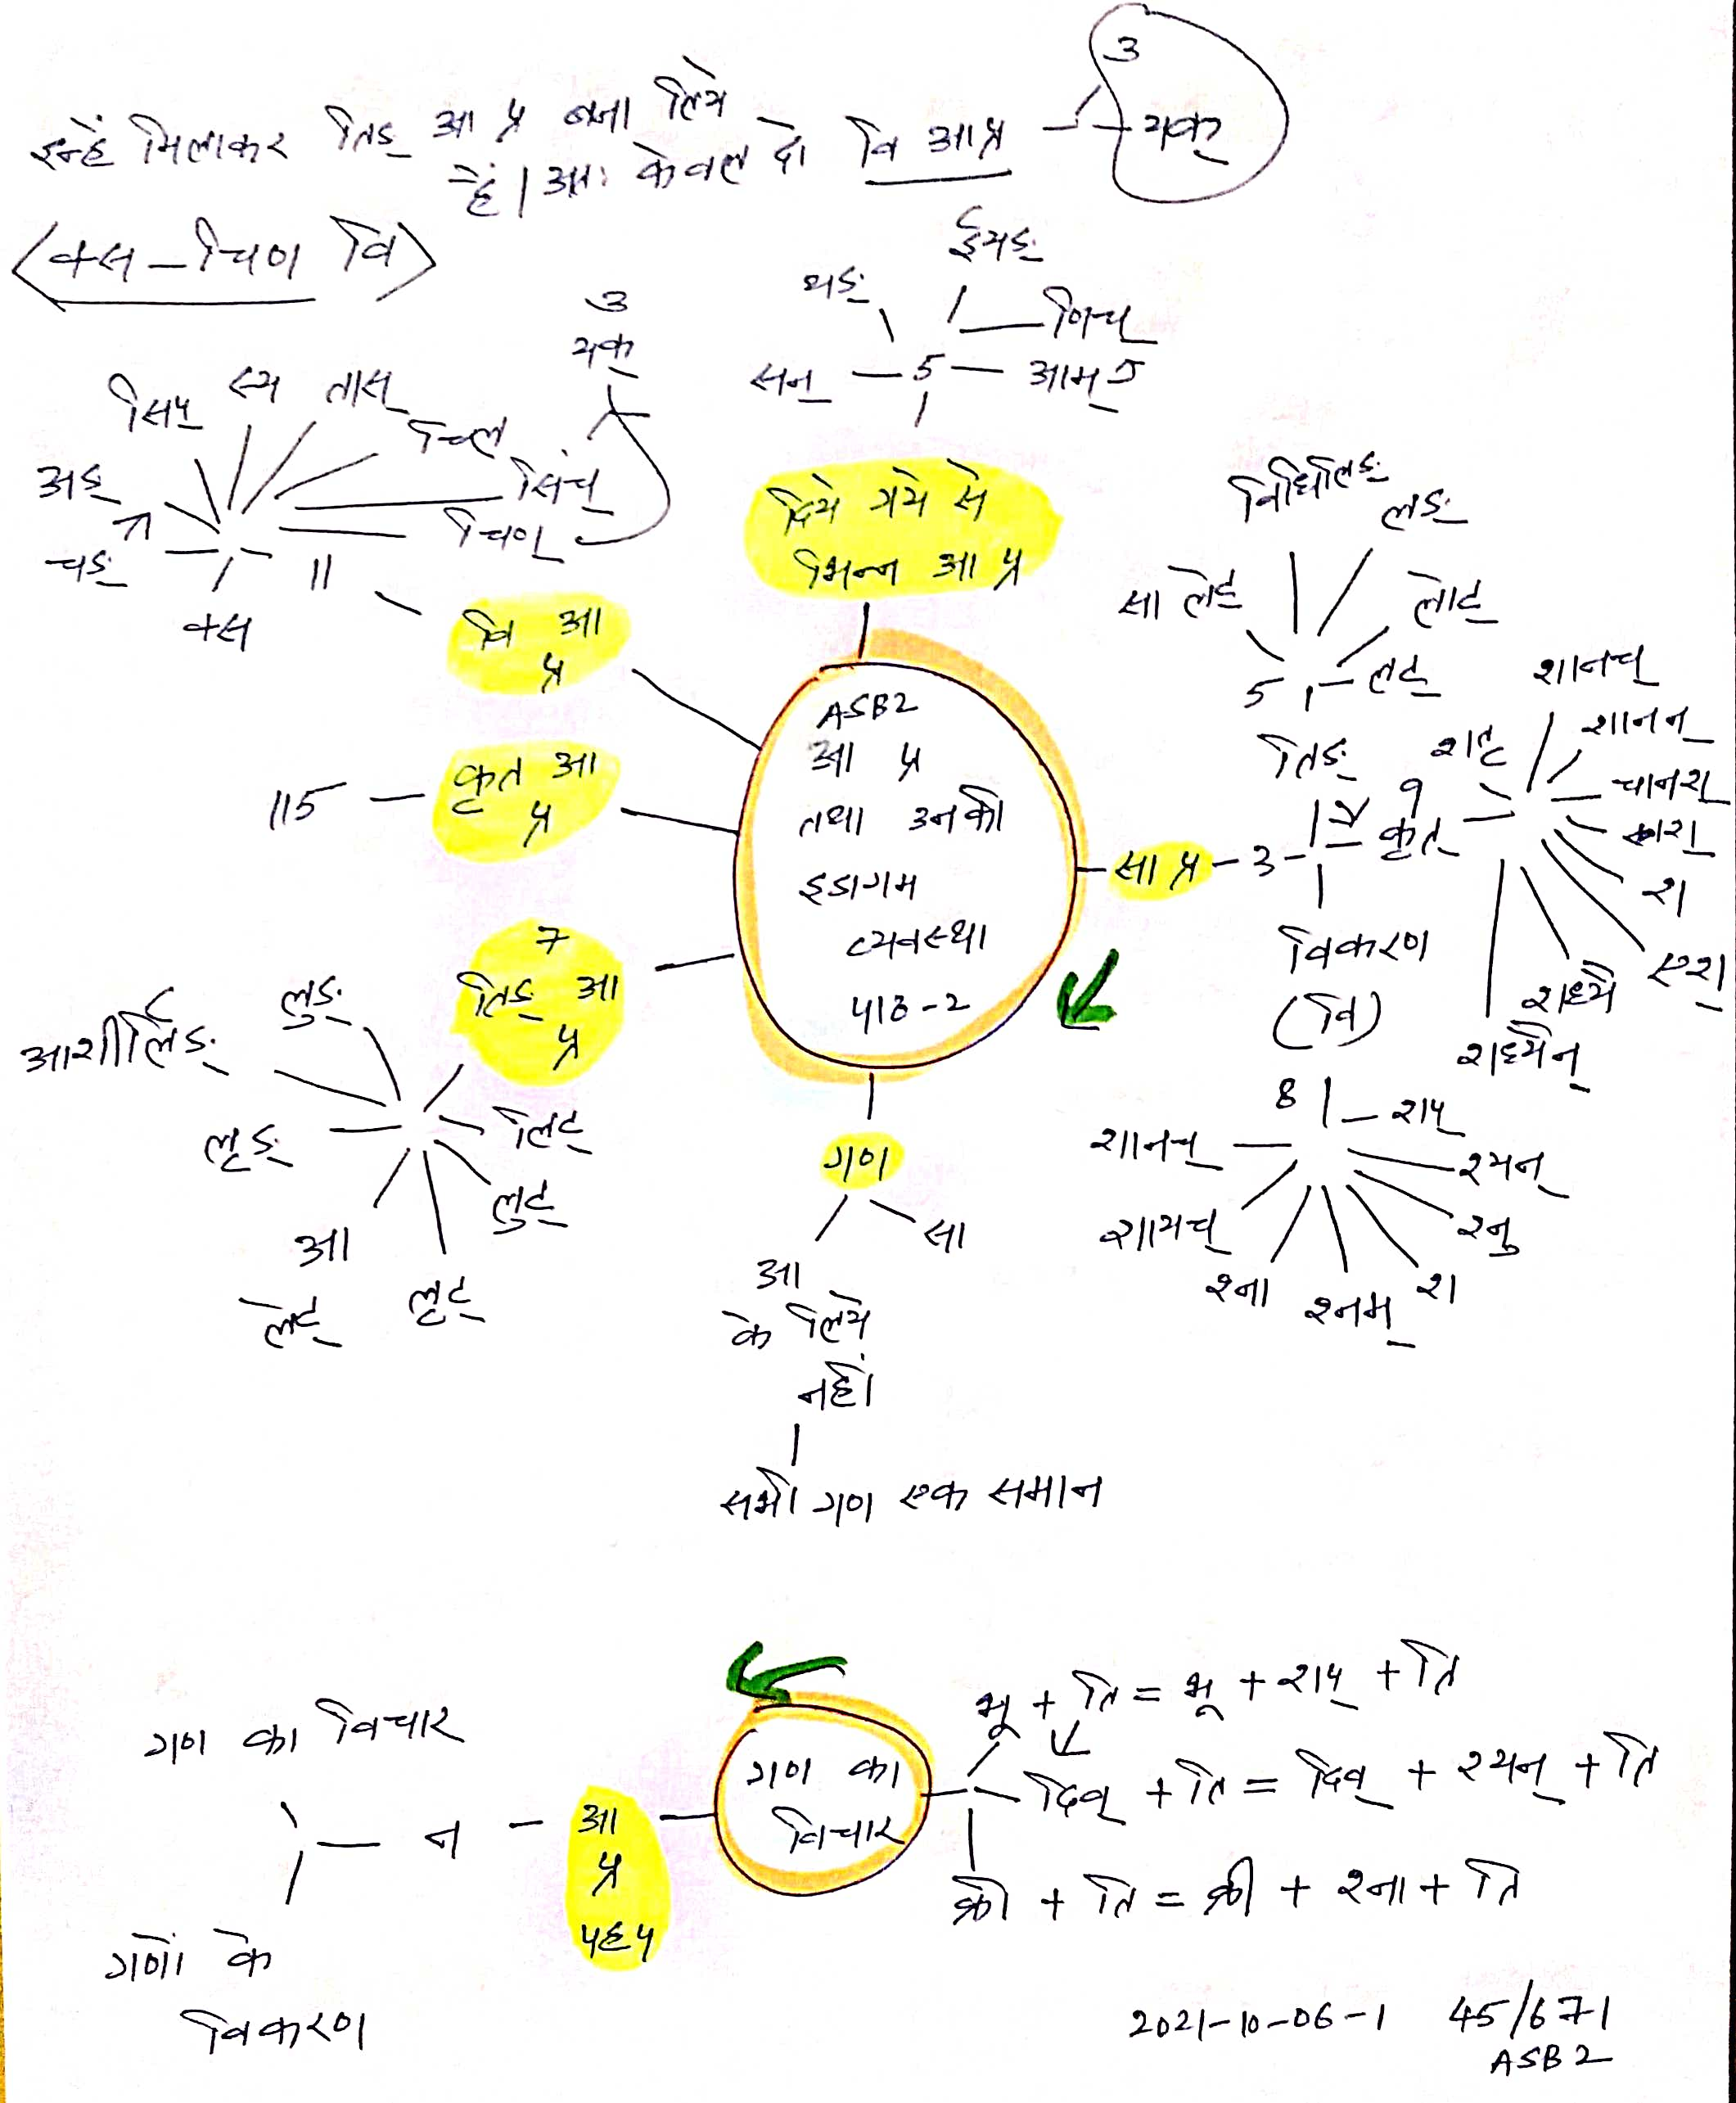 3
इन्हें मिलाकर तिङ् आ प्र बना लिये
हैं। अतः केवल दो वि आ प्र
यक्
क्स – चिण वि
ईयङ्
यङ्
णिच्
सन्
5
आम्
3
यक्
सिप्
स्य
तास्
च्लि
सिच्
चिण्
अङ्
चङ्
क्स
11
दिये गये से
भिन्न आ प्र
वि आ
प्र
115
कृत आ
प्र
7
तिङ् आ
प्र
ASB2
आ प्र
तथा उनकी
इडागम
व्यवस्था
पाठ-2
विधिलिङ्
लङ्
सा लेट्
लोट्
लट्
5
तिङ्
सा प्र – 3
9
कृत्
शतृ
शानच्
शानन्
चानश्
श
एश्
शध्यै
शध्यैन्
विकरण
(वि)
8
शप्
श्यन्
श्नु
श
श्नम्
श्ना
शायच्
शानच्
लुङ्
आशीर्लिङ्
लृङ्
लिट्
लुट्
लृट्
आ
लेट्
गण
सा
आ
के लिये
नहीं
सभी गण एक समान
गण का विचार
न
आ
प्र
गणों के
विकरण
गण का
विचार
भू + ति = भू + शप् + ति
दिव् + ति = दिव् + श्यन् + ति
क्री + ति = क्री + श्ना + ति
2021-10-06-1 45/671
ASB2